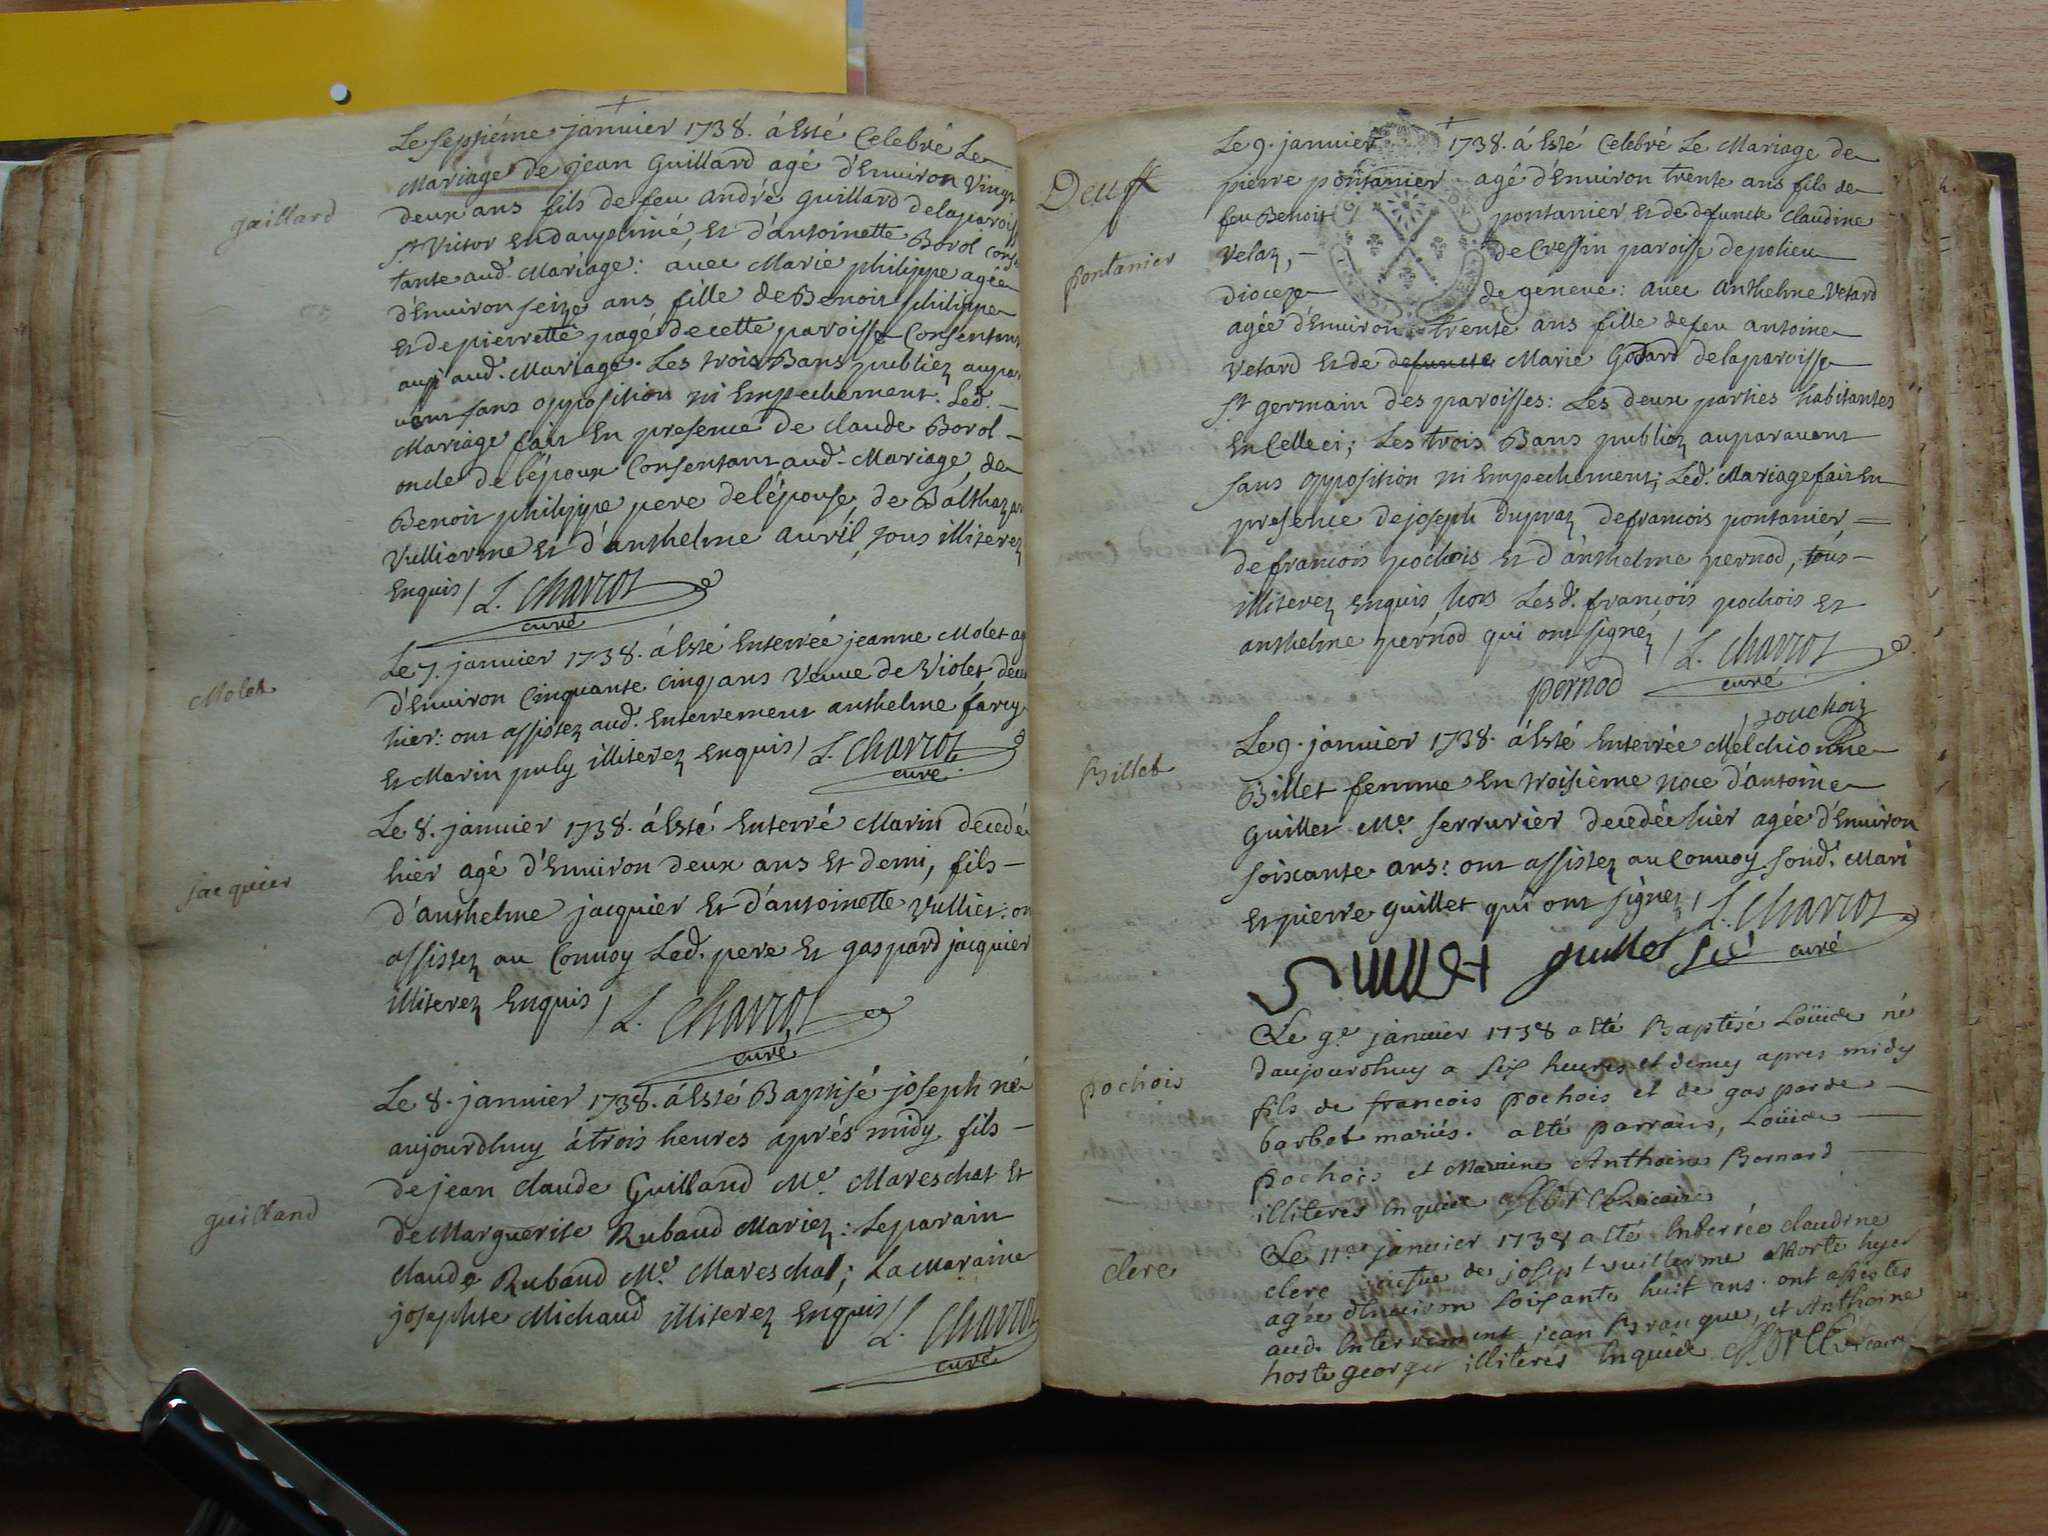 Le septiéme janvier 1738. á Esté Celebré Le
Mariage de jean Guillard agé d'Environ vingt
gaillard
deux ans fils de feu andré guillard delaparoisse
st. victor et d'antoinette Borol Cons
tante aud. Mariage: avec Marie philippe agée
d'Environ seize ans fille de Benoit philippe
Et de pierrette pagé de cette paroisse Consentant
aussi aud. Mariage. Les trois Bans publiez aupara
vant sans opposition ni Empechement. Led.
Mariage fait En presence de claude Borol
oncle de l'époux Consentant aud. Mariage, de
Benoit philippe pere de l'épouse, de Balthazar
Vullierme Et d'anthelme avril, tous illiterez
Enquis / L. Charcot
curé
Le 7. janvier 1738. á Esté Enterrée jeanne Molet ag
Molet
d'Environ Cinquante cinq ans veuve de Violet, deced
hier: ont assistez aud. Enterrement anthelme
Et Marin puly illiterez Enquis / L. Charcot
curé
Le 8. janvier 1738. á Esté Enterré Marin decedé
jacquier
hier agé d'Environ deux ans Et demi, fils
d'anthelme jacquier Et d'antoinette Vulliet: on
assistez au Convoy Led. pere Et gaspard jacquier
illiterez Enquis / L. Charcot
curé
Le 8. janvier 1738. á Esté Baptisé joseph né
aujourdhuy á trois heures aprés midy fils
de jean claude Guilland Me. Mareschal Et
guilland
de Marguerite Rubaud Mariez: Le parain
claude Rubaud Me. Mareschal; La Maraine
josephte Michaud illiterez Enquis / L. Charcot
curé
Le 9. janvier 1738. á Esté Celebré Le Mariage de
Deuff
pierre pontanier agé d'Environ trente ans fils de
feu Benoit pontanier et de defuncte claudine
pontanier
Velaz, de Cressin paroisse de polieu
Dioceze de geneve: avec anthelme Vetard
agée d'Environ trente ans fille de feu antoine
Vetard Et de defuncte Marie Godard de laparoisse
st. germain des paroisses: Les deux parties habitantes
En Celleci; Les trois Bans publiez auparavant
sans opposition ni Empechement; Led. Mariage fait En
presence de joseph dupraz de francois pontanier
de francois pochois et d'anthelme pernod, tous
illiterez enquis hors Lesd. françois pochois Et
anthelme pérnod qui ont signéz / L. Charcot
pernod curé
pouchoiz
Le 9. janvier 1738. á Esté Enterrée Melchionne
Billet
Billet femme En troisième noce d'antoine
guillet Me. serrurier decedée hier agée d'Environ
soixante ans: ont assistez au Convoy sond. Mari
Et pierre guillet qui ont signez / L. Charcot
Guillet guillet curé
Le 9e. janvier 1738 a Esté Baptisé Loüide né
daujourdhuy a six heures et demy apres midy
fils de francois pochois et de gasparde
pochois
barbet mariés. a Esté parrain, Loüide
pochois et Maraine Anthoine Bernard
illiteres Enquis vicaire
Le 11e. janvier 1738 a Esté Enterrée claudine
clerc
clerc vefve de joseph vuillerme Morte hyer
agée d'Environ soisante huit ans. ont assistes
aud. Enterrement jean Branque, et Anthoine
hoste george illiteres Enquis vicaire